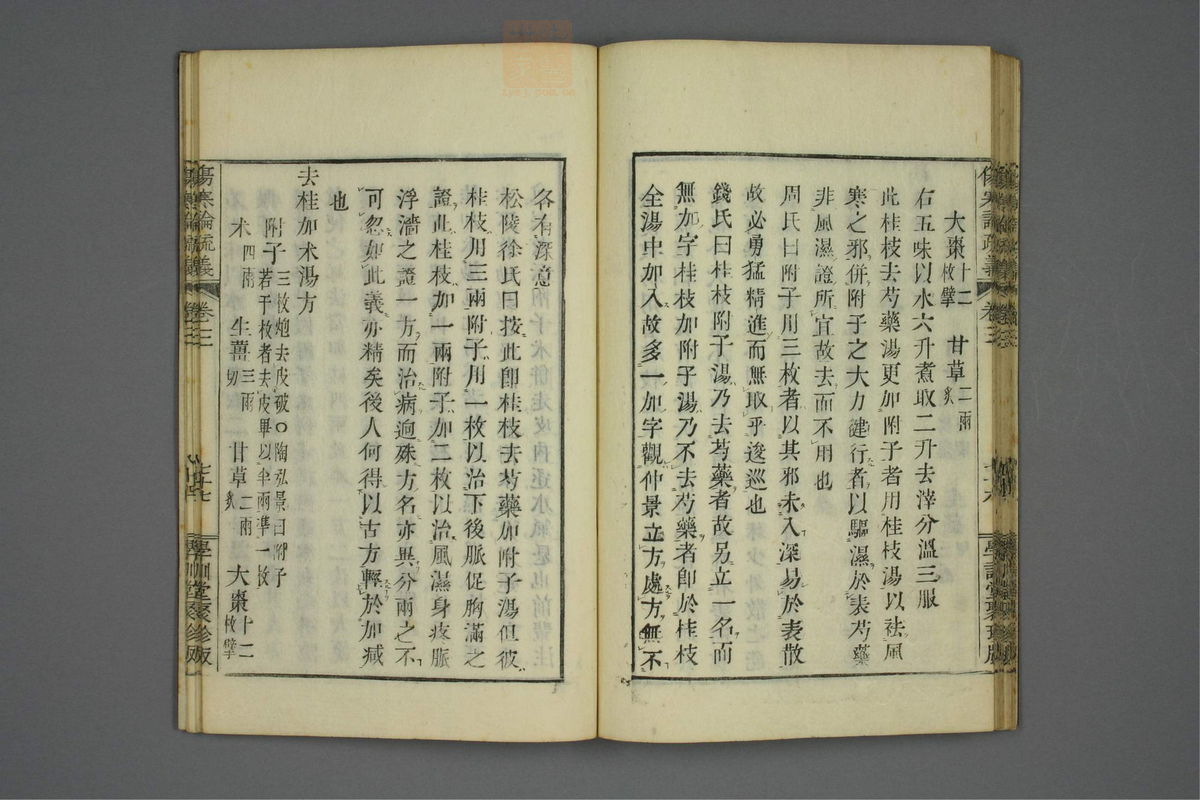 大棗十二枚擘 甘草二兩炙
右五味以水六升煮取二升去滓分溫三服
此桂枝去芍藥湯更加附子者用桂枝湯以祛風
寒之邪併附子之大力健行者以驅濕於表芍藥
非風濕證所宜故去而不用也
周氏曰附子用三枚者以其邪未入深易於表散
故必勇猛精進而無取乎逡巡也
錢氏曰桂枝附子湯乃去芍藥者故另立一名而
無加字桂枝加附子湯乃不去芍藥者即於桂枝
全湯中加入故多一加字觀仲景立方處方無不
各有深意
松陵徐氏曰按此即桂枝去芍藥加附子湯但彼
桂枝用三兩附子用一枚以治下後脈促胸滿之
證此桂枝加一兩附子加二枚以治風濕身疼脈
浮濇之證一方而治病逈殊方名亦異分兩之不
可忽如此義亦精矣後人何得以古方輕於加減
也
去桂加朮湯方
附子三枚炮去皮破○陶弘景曰附子若干枚者去皮畢以半兩準一枚
朮四兩 生薑三兩切 甘草二兩炙 大棗十二枚擘
傷寒論疏義 卷三
學訓堂聚珍版